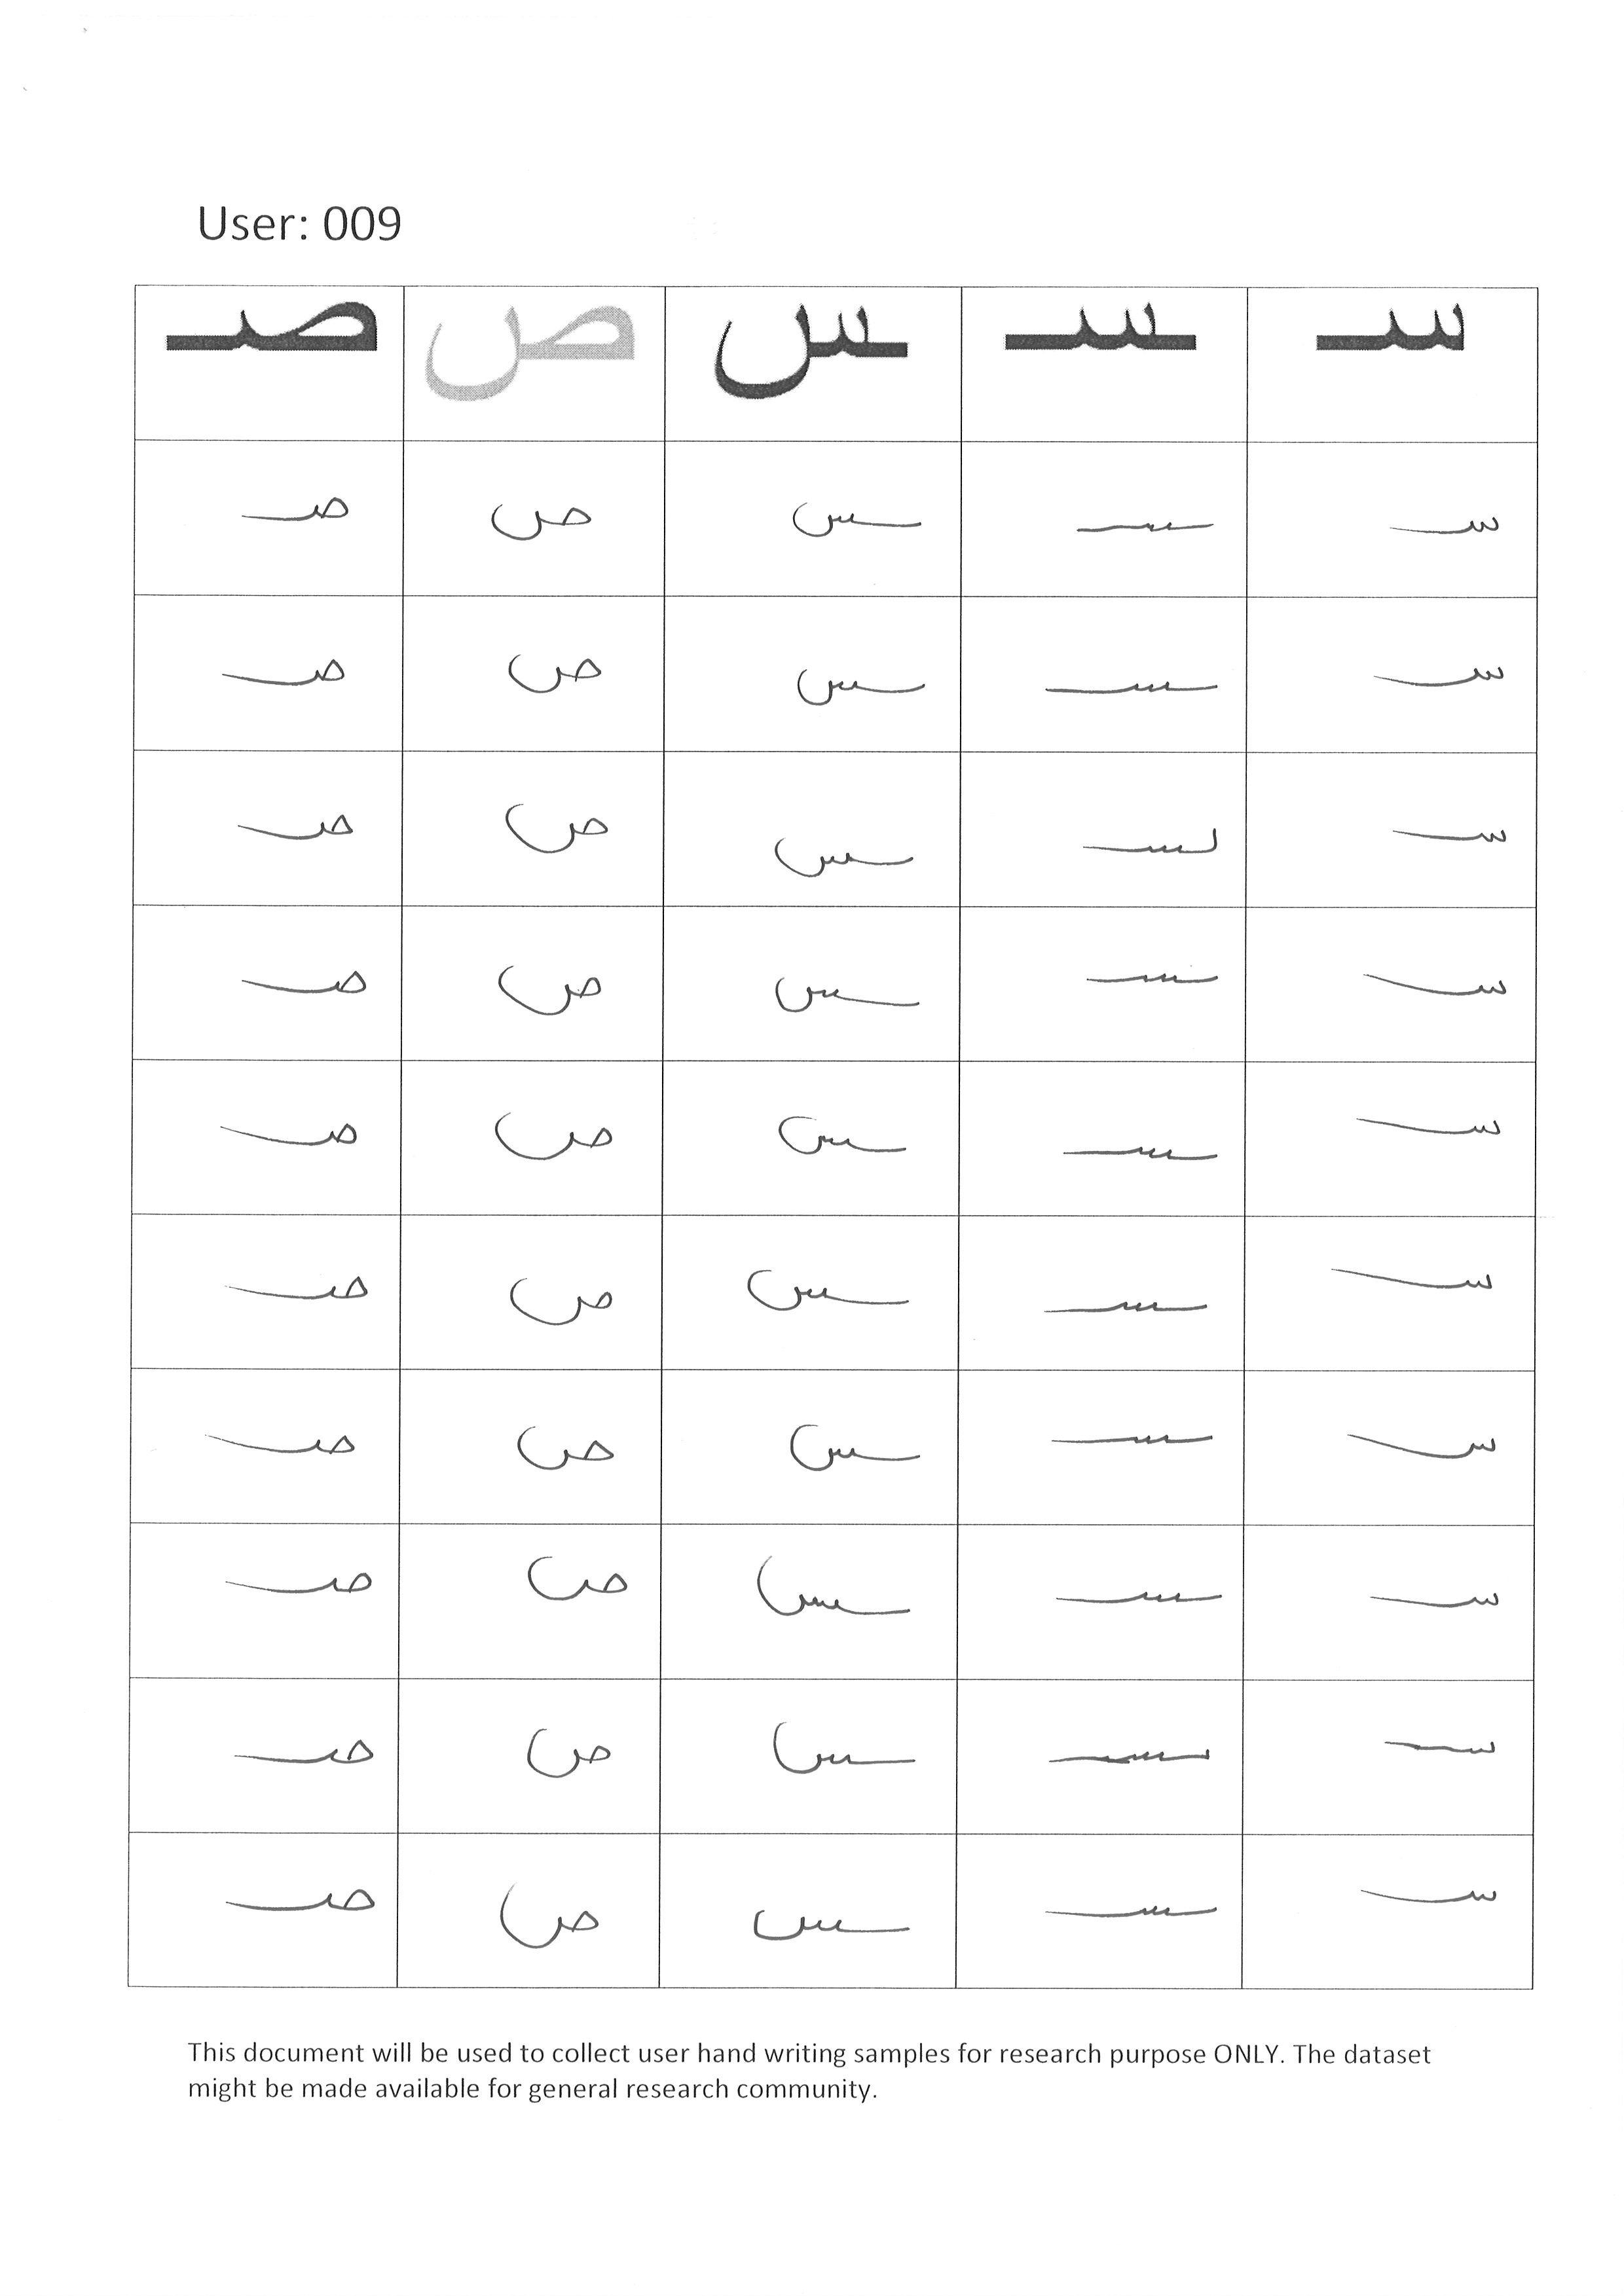 User: 009
سـ ـسـ ـس ص صـ
سـ ـسـ ـس ص صـ
سـ ـسـ ـس ص صـ
سـ ـسـ ـس ص صـ
سـ ـسـ ـس ص صـ
سـ ـسـ ـس ص صـ
سـ ـسـ ـس ص صـ
سـ ـسـ ـس ص صـ
سـ ـسـ ـس ص صـ
سـ ـسـ ـس ص صـ
سـ ـسـ ـس ص صـ
This document will be used to collect user hand writing samples for research purpose ONLY. The dataset
might be made available for general research community.